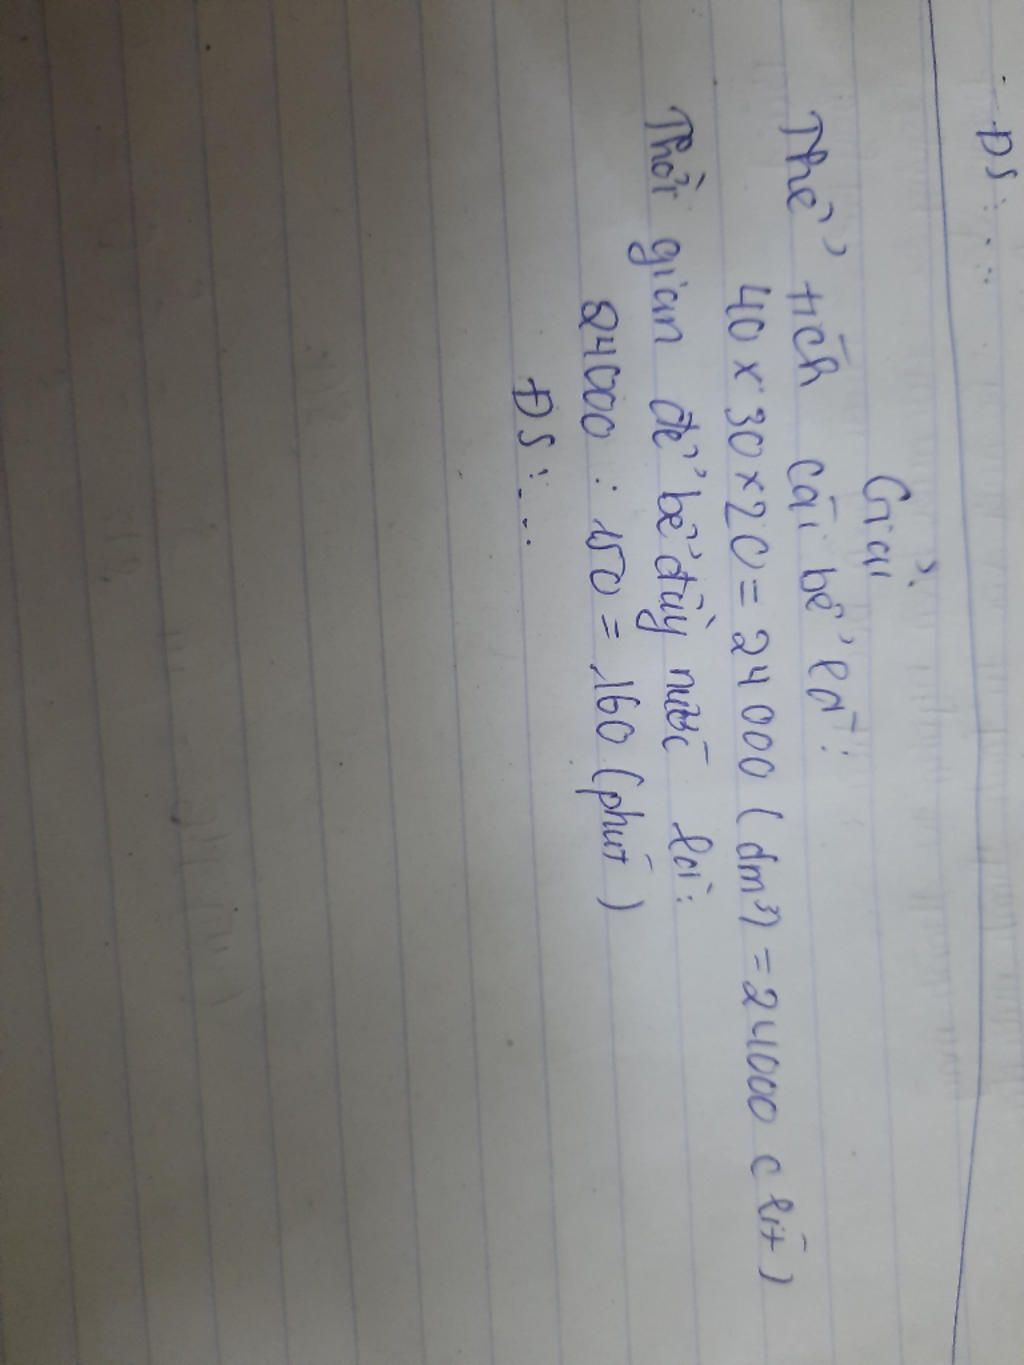 ĐS: ...
Giải
Thể tích cái bể là:
40 x 30 x 20 = 24 000 (dm³) = 24000 (lít)
Thời gian để bể đầy nước là:
24000 : 150 = 160 (phút)
ĐS: ...